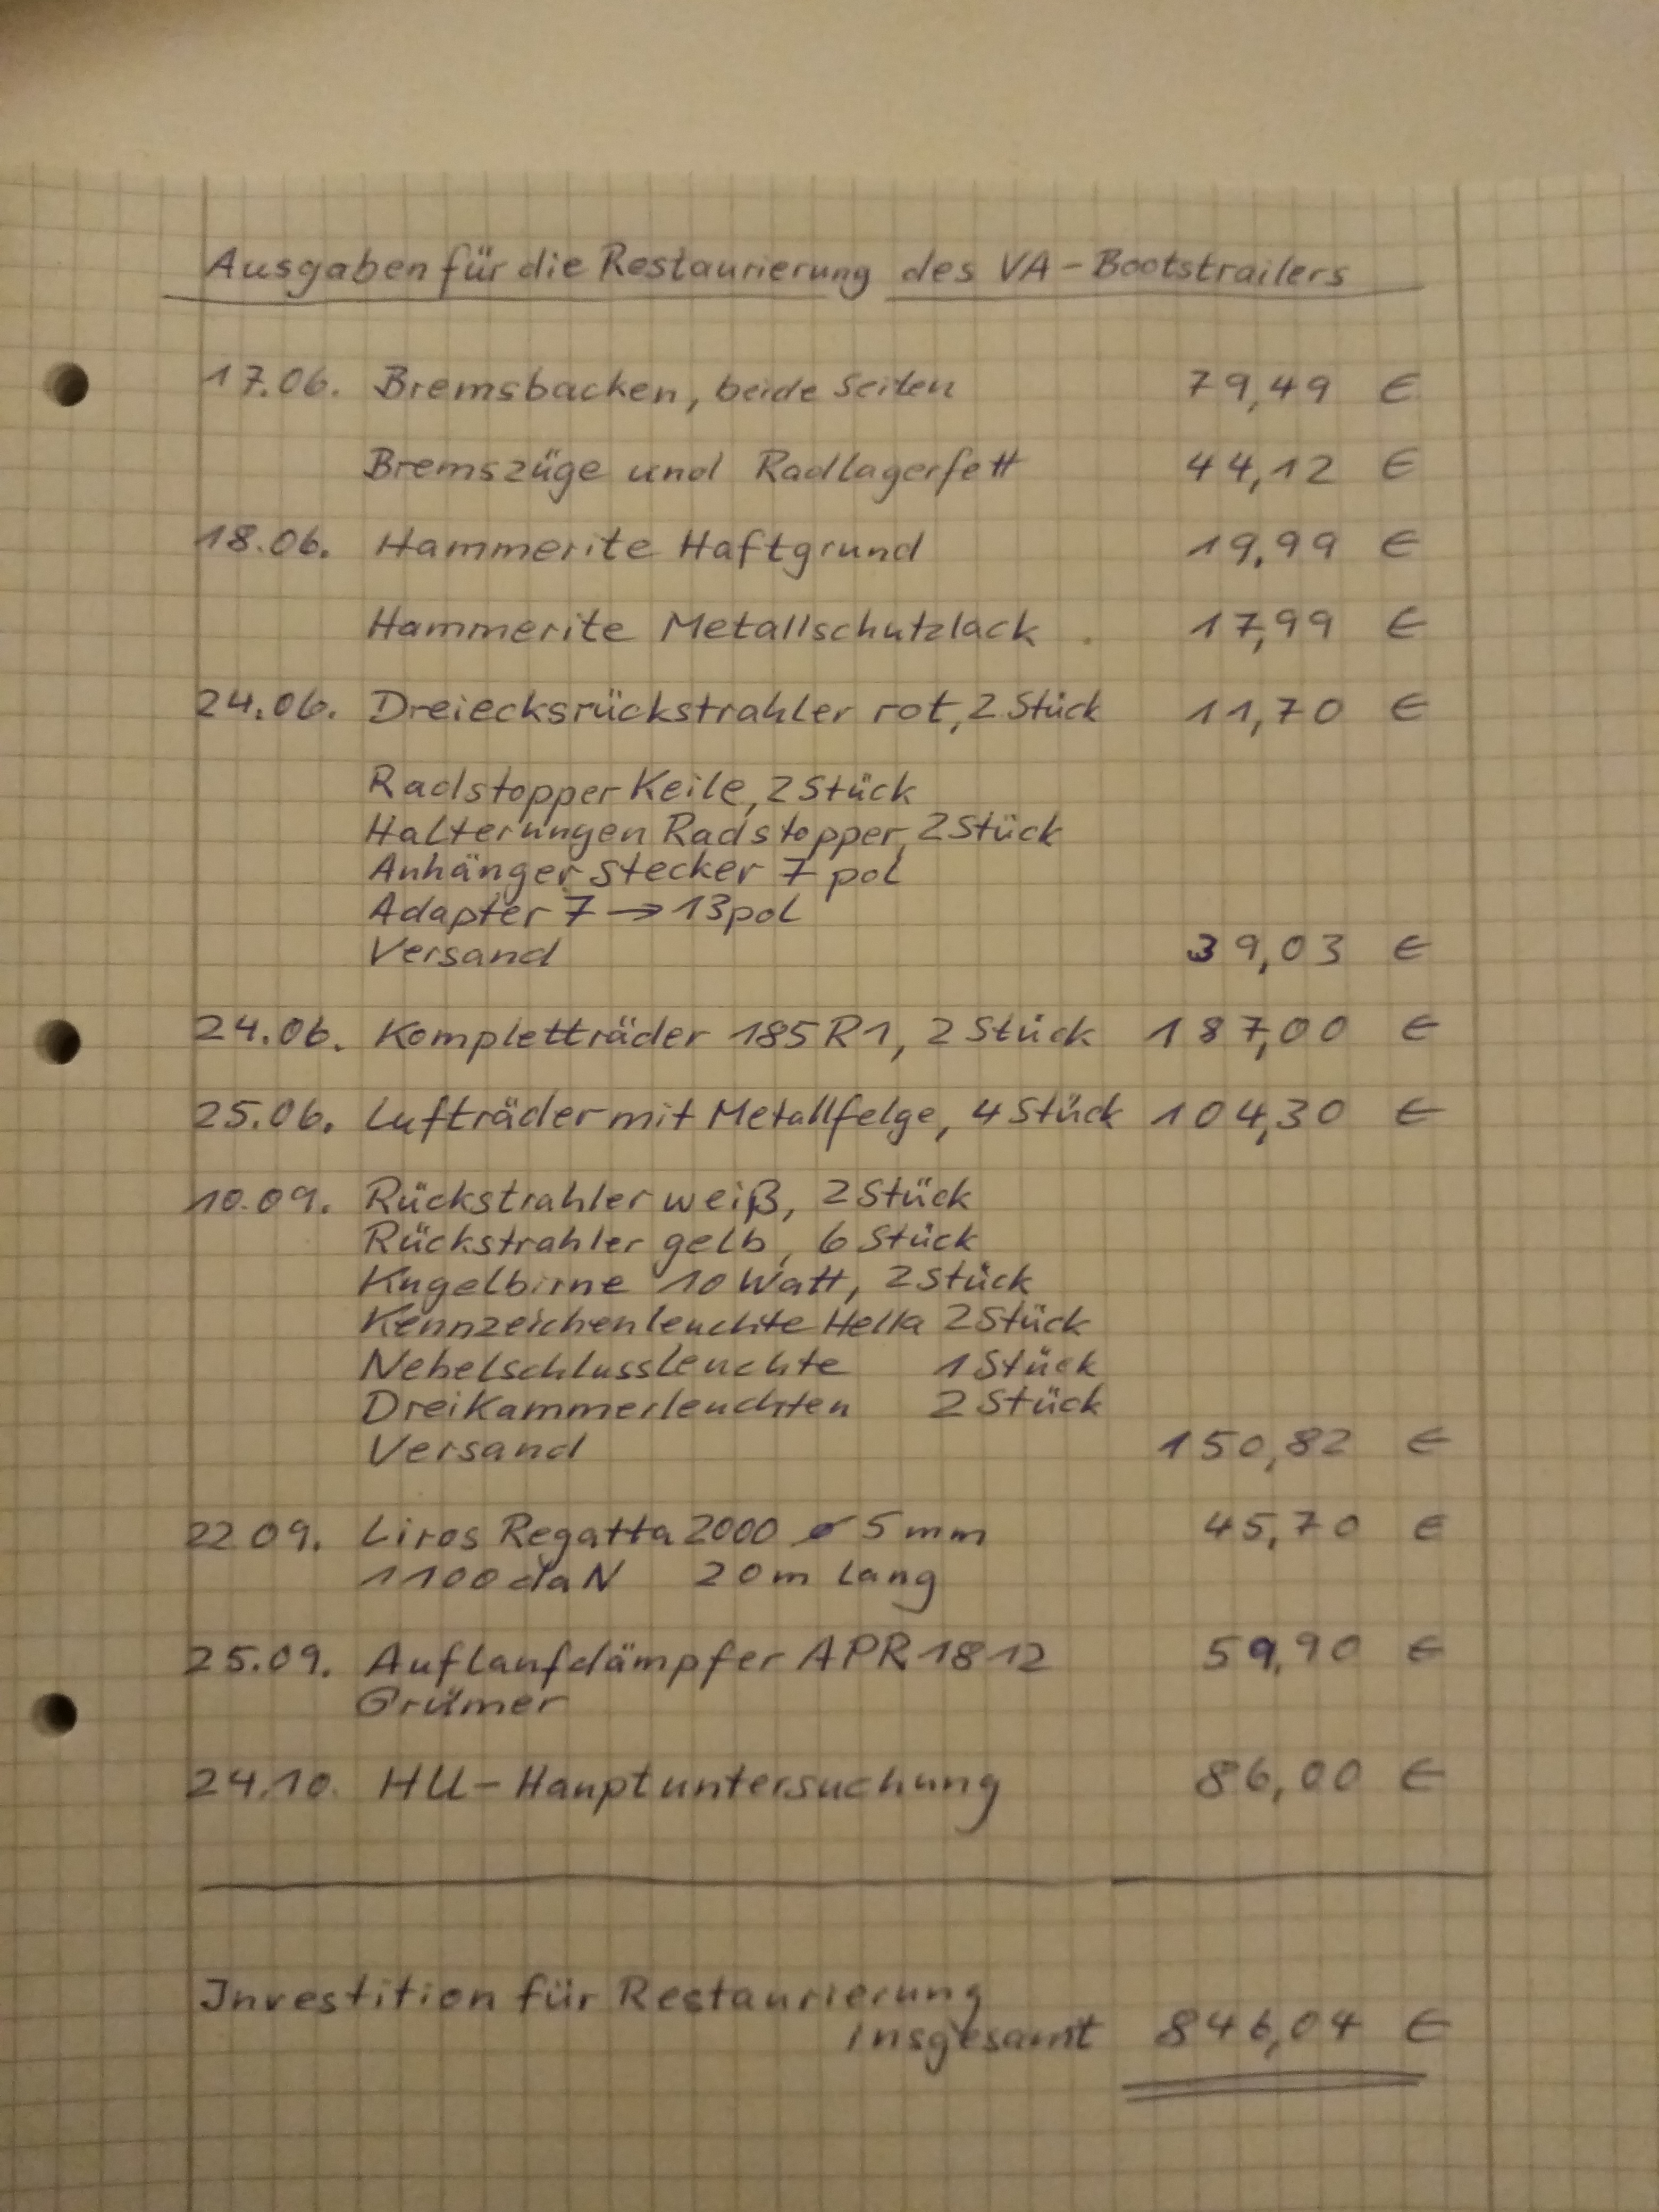 Ausgaben für die Restaurierung des VA-Bootstrailers
17.06. Bremsbacken, beide Seiten 79,49 €
Bremszüge und Radlagerfett 44,12 €
18.06. Hammerite Haftgrund 19,99 €
Hammerite Metallschutzlack 17,99 €
24.06. Dreiecksrückstrahler rot, 2 Stück 11,70 €
Radstopper Keile, 2 Stück
Halterungen Radstopper, 2 Stück
Anhänger stecker 7 pol
Adapter 7 → 13pol
Versand 39,03 €
24.06. Kompletträder 185 R1, 2 Stück 187,00 €
25.06. Lufträder mit Metallfelge, 4 Stück 104,30 €
10.09. Rückstrahler weiß, 2 Stück
Rückstrahler gelb, 6 Stück
Kugelbirne 10 Watt, 2 Stück
Kennzeichenleuchte Hella 2 Stück
Nebelschlussleuchte 1 Stück
Dreikammerleuchten 2 Stück
Versand 150,82 €
22 09. Liros Regatta 2000 ø 5 mm 45,70 €
1100 daN 20m lang
25.09. Auflaufdämpfer APR 1812 59,90 €
Grümer
24.10. HU-Hauptuntersuchung 86,00 €
Investition für Restaurierung
insgesamt 846,04 €